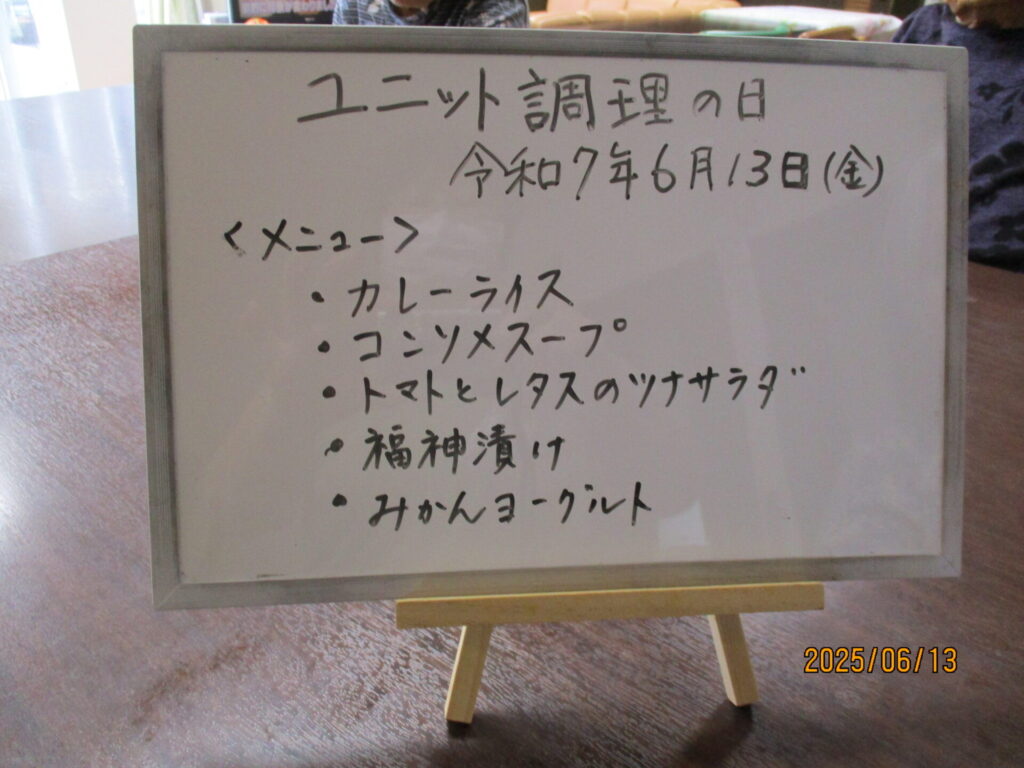 ユニット調理の日
令和7年6月13日(金)
<メニュー>
・カレーライス
・コンソメスープ
・トマトとレタスのツナサラダ
・福神漬け
・みかんヨーグルト
2025/06/13